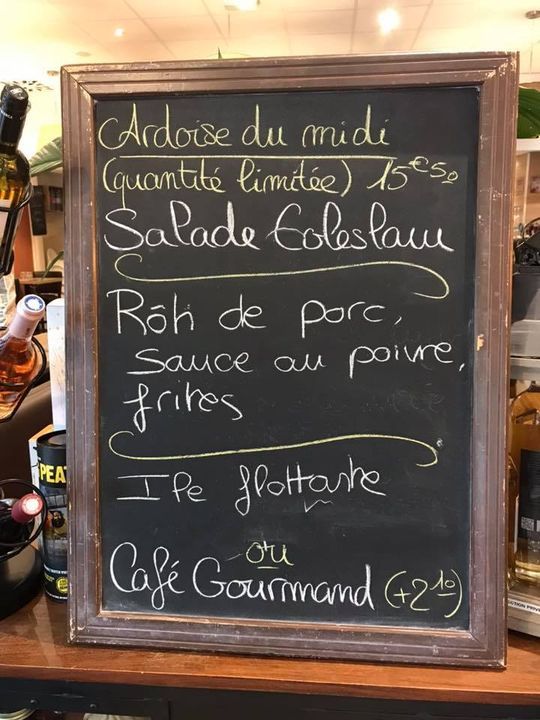 Ardoise du midi
(quantité limitée) 15€50
Salade Coleslaw
Rôti de porc,
sauce au poivre,
frites
Ile flottante
ou
Café Gourmand (+2,10)
PEAT